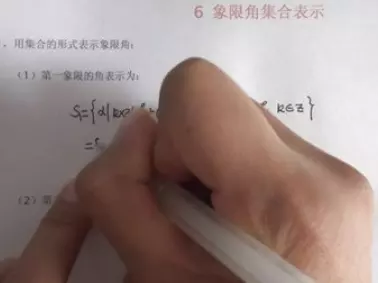 6 象限角集合表示
. 用集合的形式表示象限角:
(1) 第一象限的角表示为:
S₁={α| k∈Z}
={
(2) 第